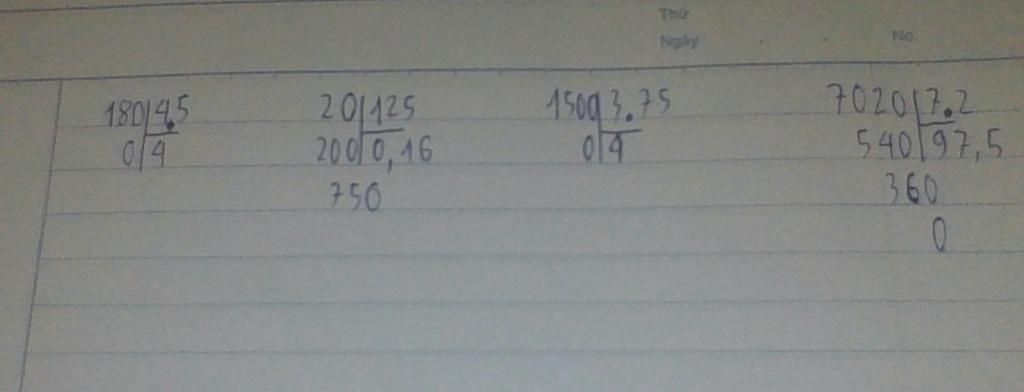 Thứ
Ngày No.
180 4.5 20 125 1500 3.75 7020 7.2
0 4 200 0,16 0 4 540 97,5
750 360
0